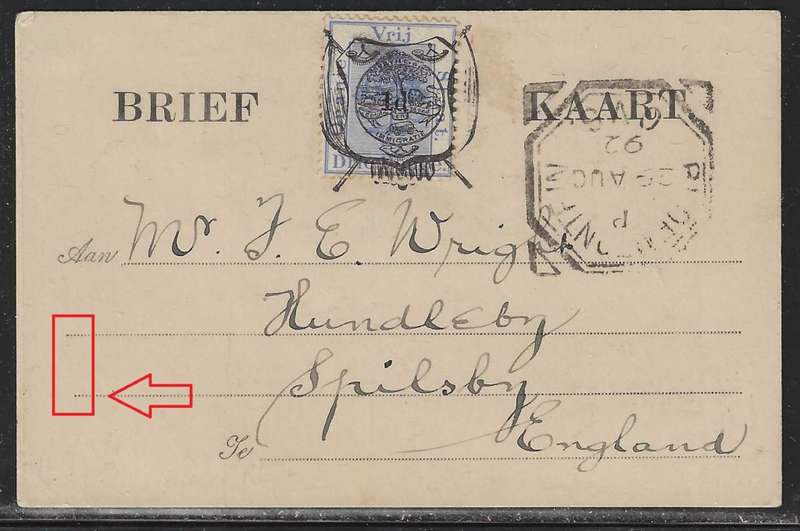 Vrij
BRIEF KAART
1d
IMMIGRATIE
92
29 AUG
P
Aan Mr. F. E. Wright
Hundleby
Spilsby
Te England